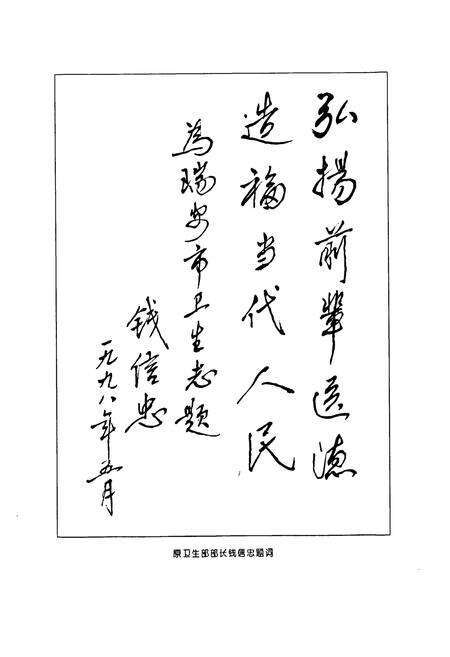 弘揚前輩医德
造福当代人民
為瑞安市卫生志题
钱信忠
一九九八年五月
原卫生部部长钱信忠题词